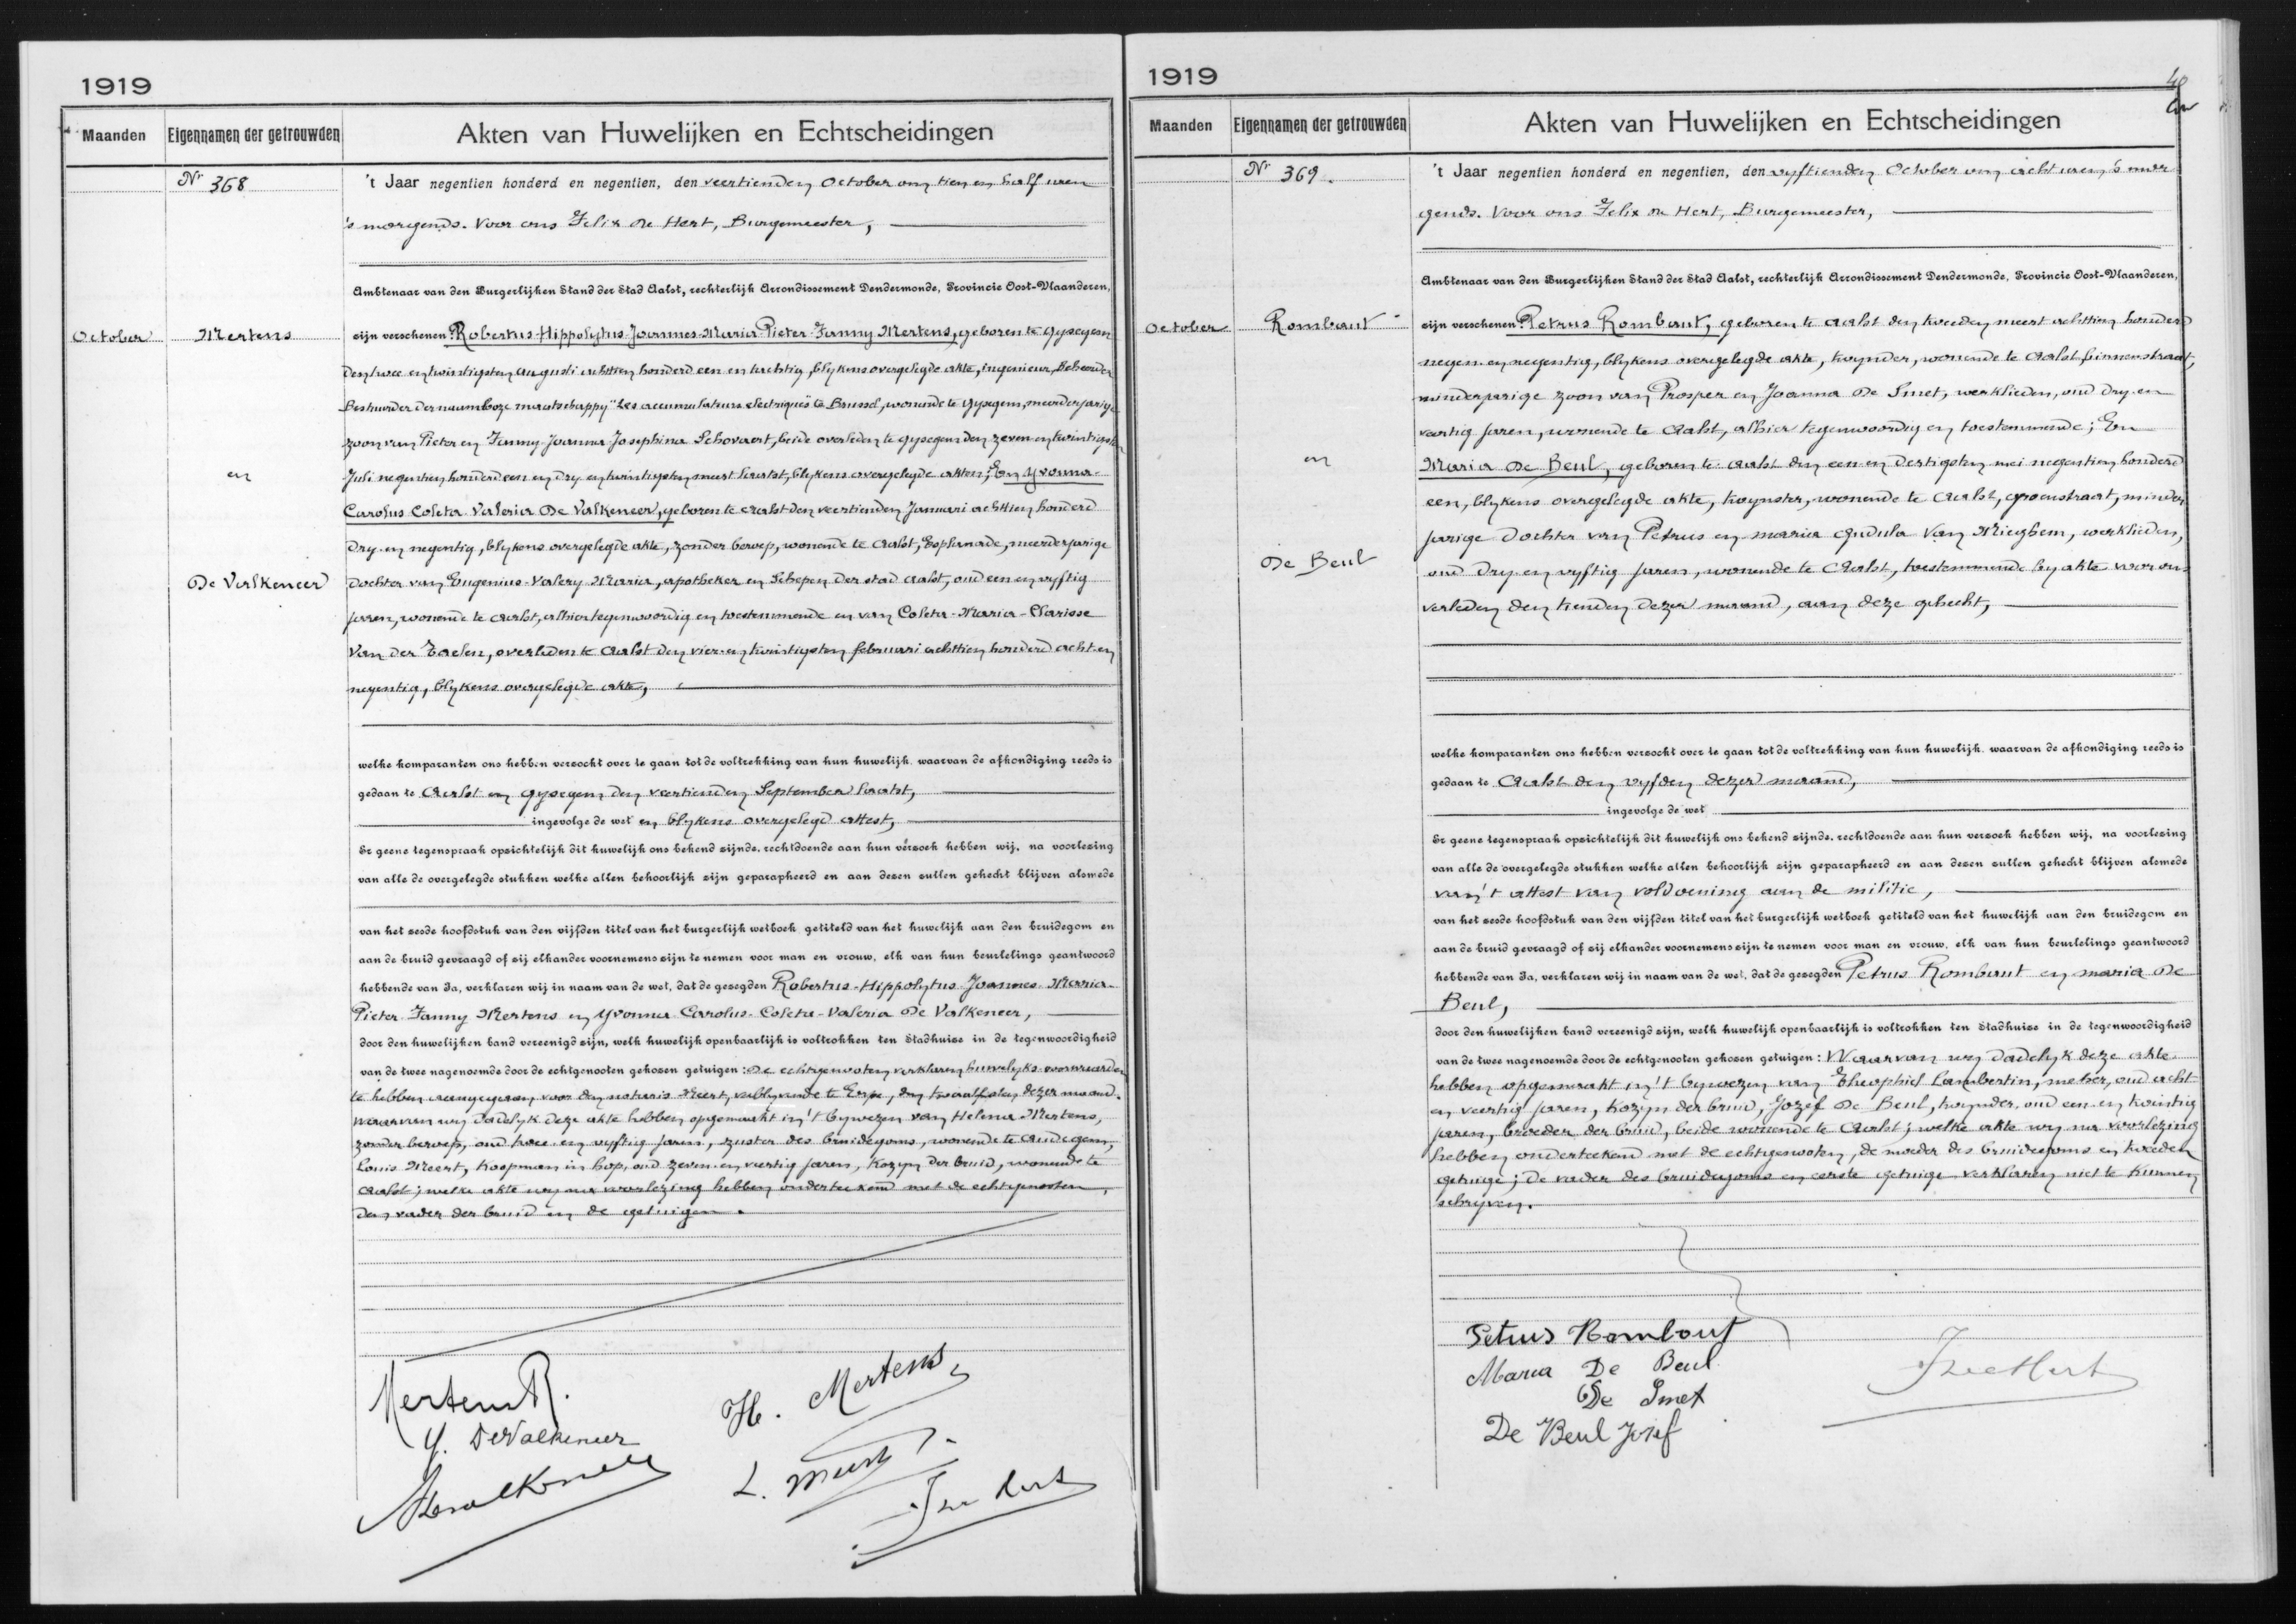 1919
Maanden Eigennamen der getrouwden Akten van Huwelijken en Echtscheidingen
Nr 368
't Jaar negentien honderd en negentien, den veertienden October om tien en half uren
's morgends. Voor ons Felix De Hert, Burgemeester,
Ambtenaar van den Burgerlijken Stand der Stad Aalst, rechterlijk Arrondissement Dendermonde, Provincie Oost-Vlaanderen,
October Mertens
zijn verschenen: Robertus-Hippolytus-Joannes-Maria-Pieter-Fanny Mertens, geboren te Gysegem
den twee en twintigsten augusti achttien honderd een en tachtig, blykens overgelegde akte, ingenieur, Beheerder
Bestuurder der naamloze maatschappy "Les accumulateurs electriques" te Brussel, wonende te Gysegem, meerderjarige
zoon van Pieter en Fanny-Joanna-Josephina Schovaert, beide overleden te Gysegem den zeven en twintigsten
Juli negentien honderd een en dry en twintigsten meert laatst, blykens overgelegde akten; En Yvonna-
en
Carolus-Coleta-Valeria De Valkeneer, geboren te Aalst den veertienden Januari achttien honderd
dry en negentig, blykens overgelegde akte, zonder beroep, wonende te Aalst, Esplanade, meerderjarige
De Valkeneer
dochter van Eugenius-Valery-Maria, apotheker en Schepen der stad Aalst, oud een en vyftig
jaren, wonende te Aalst, alhier tegenwoordig en toestemmende en van Coleta-Maria-Clarisse
Van der Taelen, overleden te Aalst den vier en twintigsten februari achttien honderd acht en
negentig, blykens overgelegde akte,
welke komparanten ons hebben verzocht over te gaan tot de voltrekking van hun huwelijk, waarvan de afkondiging reeds is
gedaan te Aalst en Gysegem den veertienden September laatst,
ingevolge de wet en blykens overgelegd attest,
Er geene tegenspraak opzichtelijk dit huwelijk ons bekend zijnde, rechtdoende aan hun verzoek hebben wij, na voorlezing
van alle de overgelegde stukken welke allen behoorlijk zijn geparapheerd en aan dezen zullen gehecht blijven alsmede
van het zesde hoofdstuk van den vijfden titel van het burgerlijk wetboek getiteld van het huwelijk aan den bruidegom en
aan de bruid gevraagd of zij elkander voornemens zijn te nemen voor man en vrouw, elk van hun beurtelings geantwoord
hebbende van Ja, verklaren wij in naam van de wet, dat de gezegden Robertus-Hippolytus-Joannes-Maria-
Pieter-Fanny Mertens en Yvonna-Carolus-Coleta-Valeria De Valkeneer,
door den huwelijken band vereenigd zijn, welk huwelijk openbaarlijk is voltrokken ten Stadhuize in de tegenwoordigheid
van de twee nagenoemde door de echtgenooten gekozen getuigen: De echtgenooten verklaren huwelyks voorwaarden
te hebben aangegaan voor den notaris Meert, verblyvende te Erpe, den twaalfsten dezer maand.
Waarvan wy dadelyk deze akte hebben opgemaakt in 't bywezen van Helena Mertens,
zonder beroep, oud twee en vyftig jaren, zuster des bruidegoms, wonende te Audegem,
Louis Meert, koopman in hop, oud zeven en veertig jaren, kozyn der bruid, wonende te
Aalst; welke akte wy na voorlezing hebben onderteekend met de echtgenooten,
den vader der bruid en de getuigen.
Mertens R. H. Mertens
Y. DeValkeneer
L. Meert
1919
Maanden Eigennamen der getrouwden Akten van Huwelijken en Echtscheidingen
Nr 369.
't Jaar negentien honderd en negentien, den vyftienden October om acht uren 's mor
gends. Voor ons Felix De Hert, Burgemeester,
Ambtenaar van den Burgerlijken Stand der Stad Aalst, rechterlijk Arrondissement Dendermonde, Provincie Oost-Vlaanderen,
October Rombaut
zijn verschenen: Petrus Rombaut, geboren te Aalst den tweeden meert achttien honderd
negen en negentig, blykens overgelegde akte, twynder, wonende te Aalst, Binnenstraat,
minderjarige zoon van Prosper en Joanna De Smet, werklieden, oud dry en
veertig jaren, wonende te Aalst, alhier tegenwoordig en toestemmende; En
en
Maria De Beul, geboren te Aalst den een en dertigsten mei negentien honderd
een, blykens overgelegde akte, twynster, wonende te Aalst, Groenstraat, minder
jarige dochter van Petrus en Maria Gudula Van Mieghem, werklieden,
De Beul
oud dry en vyftig jaren, wonende te Aalst, toestemmende by akte voor ons
verleden den tienden dezer maand, aan deze gehecht,
welke komparanten ons hebben verzocht over te gaan tot de voltrekking van hun huwelijk, waarvan de afkondiging reeds is
gedaan te Aalst den vyfden dezer maand,
ingevolge de wet
Er geene tegenspraak opzichtelijk dit huwelijk ons bekend zijnde, rechtdoende aan hun verzoek hebben wij, na voorlezing
van alle de overgelegde stukken welke allen behoorlijk zijn geparapheerd en aan dezen zullen gehecht blijven alsmede
van 't attest van voldoening aan de militie,
van het zesde hoofdstuk van den vijfden titel van het burgerlijk wetboek getiteld van het huwelijk aan den bruidegom en
aan de bruid gevraagd of zij elkander voornemens zijn te nemen voor man en vrouw, elk van hun beurtelings geantwoord
hebbende van Ja, verklaren wij in naam van de wet, dat de gezegden Petrus Rombaut en Maria De
Beul,
door den huwelijken band vereenigd zijn, welk huwelijk openbaarlijk is voltrokken ten Stadhuize in de tegenwoordigheid
van de twee nagenoemde door de echtgenooten gekozen getuigen: Waarvan wy dadelyk deze akte
hebben opgemaakt in 't bywezen van Theophiel Lambertin, metser, oud acht
en veertig jaren, kozyn der bruid, Jozef De Beul, twynder, oud een en twintig
jaren, broeder der bruid, beide wonende te Aalst; welke akte wy na voorlezing
hebben onderteekend met de echtgenooten, de moeder des bruidegoms en tweeden
getuige; de vader des bruidegoms en eerste getuige verklaren niet te kunnen
schryven.
Petrus Rombout
Maria De Beul
De Smet
De Beul Josef